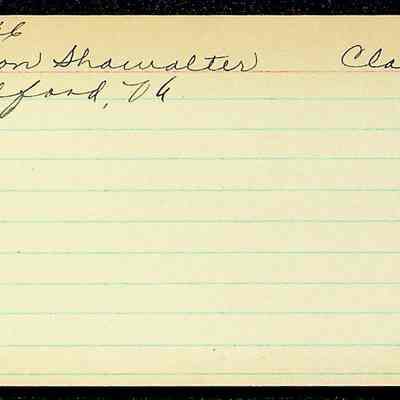 on Shawalter Cla
ford, Va